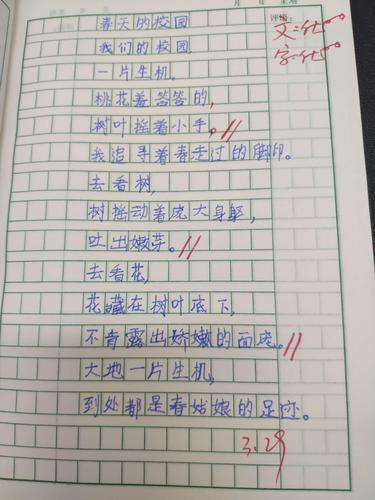 春天的校园
我们的校园
一片生机。
桃花羞答答的,
树叶摇着小手。
我追寻着春走过的脚印。
去看树,
树摇动着庞大身躯,
吐出嫩芽。
去看花,
花藏在树叶底下,
不肯露出娇嫩的面庞。
大地一片生机,
到处都是春姑娘的足迹。
3.29